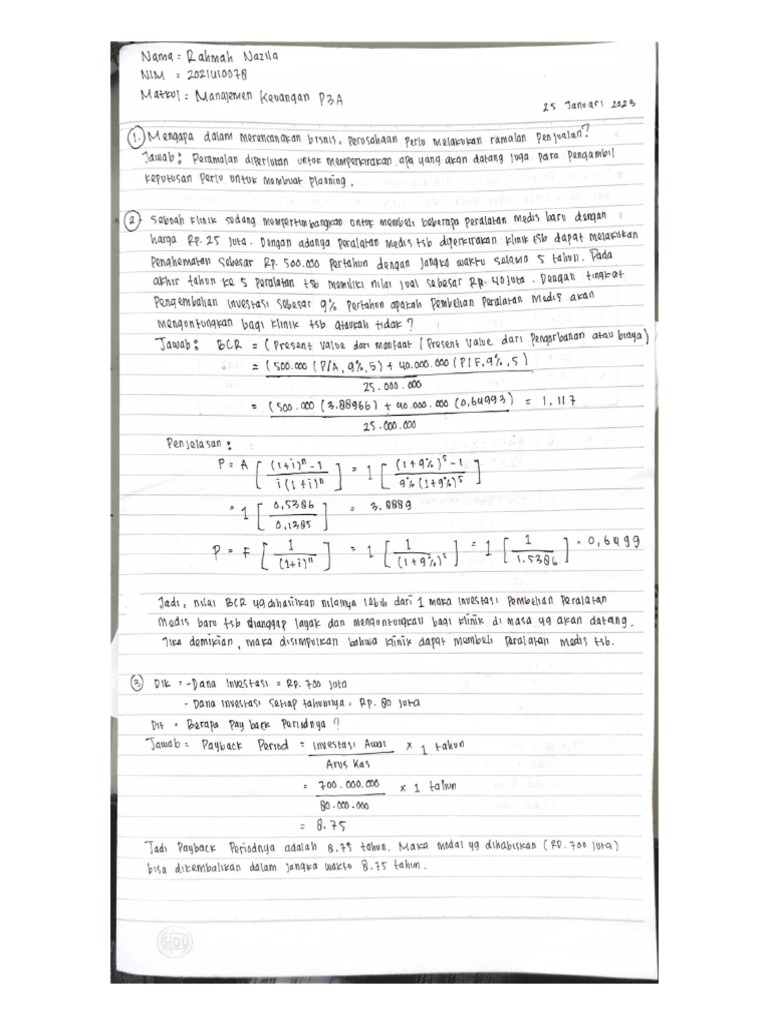 Nama = Rahmah Nazila
NIM = 2021U10078
Matkul = Manajemen Keuangan P3A
25 Januari 2023
1. Mengapa dalam merencanakan bisnis, perusahaan perlu melakukan ramalan penjualan?
Jawab : Peramalan diperlukan untuk memperkirakan apa yang akan datang juga para pengambil
keputusan perlu untuk membuat planning.
2. Sebuah klinik sedang mempertimbangkan untuk membeli beberapa peralatan medis baru dengan
harga Rp. 25 juta. Dengan adanya peralatan medis tsb diperkirakan klinik tsb dapat melakukan
Penghematan sebesar Rp. 500.000 pertahun dengan jangka waktu selama 5 tahun. Pada
akhir tahun ke 5 peralatan tsb memiliki nilai jual sebesar Rp. 40 juta. Dengan tingkat
Pengembalian investasi sebesar 9% pertahun apakah Pembelian Peralatan Medis akan
menguntungkan bagi klinik tsb ataukah tidak ?
Jawab : BCR = (Present Value dari manfaat / Present Value dari Pengorbanan atau biaya)
= (500.000 (P/A, 9%, 5) + 40.000.000 (P/F, 9%, 5)
25.000.000
= (500.000 (3.88966) + 40.000.000 (0,64993) = 1.117
25.000.000
Penjelasan :
P = A [ (1+i)ⁿ - 1 / i (1+i)ⁿ ] = 1 [ (1+9%)⁵ - 1 / 9% (1+9%)⁵ ]
= 1 [ 0,5386 / 0,1385 ] = 3.8889
P = F [ 1 / (1+i)ⁿ ] = 1 [ 1 / (1+9%)⁵ ] = 1 [ 1 / 1.5386 ] = 0,6499
Jadi, nilai BCR yg dihasilkan nilainya lebih dari 1 maka investasi Pembelian Peralatan
Medis baru tsb dianggap layak dan menguntungkan bagi klinik di masa yg akan datang.
Jika demikian, maka disimpulkan bahwa klinik dapat membeli peralatan medis tsb.
3. Dik = - Dana Investasi = Rp. 700 juta
- Dana investasi setiap tahunnya = Rp. 80 juta
Dit = Berapa Pay back Periodnya ?
Jawab = Payback Period = Investasi Awal x 1 tahun
Arus Kas
= 700.000.000 x 1 tahun
80.000.000
= 8.75
Jadi Payback Periodnya adalah 8.75 tahun. Maka modal yg dihabiskan (Rp. 700 juta)
bisa dikembalikan dalam jangka waktu 8.75 tahun.
SIDU